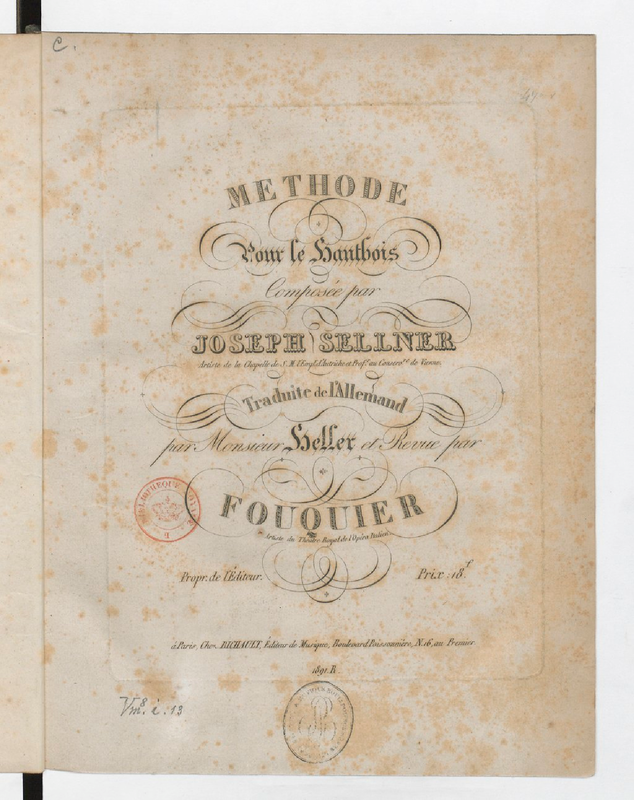 C.
49
METHODE
Pour le Hautbois
Composée par
JOSEPH SELLNER
Artiste de la Chapelle de S. M. l'Emp.r d'Autriche et Prof.r au Conserv.re de Vienne.
Traduite de l'Allemand
par Monsieur Heller et Revue par
FOUQUIER
Artiste du Théâtre Royal de l'Opéra Italien.
BIBLIOTHEQUE
Propr. de l'Éditeur.
Prix : 18.f
à Paris, Chez RICHAULT, Éditeur de Musique, Boulevard Poissonnière, N.16, au Premier.
1891. R
Vm8. i. 13